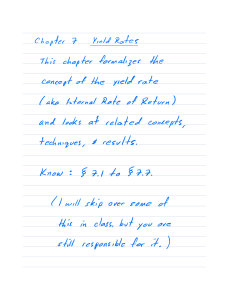 Chapter 7 Yield Rates
This chapter formalizes the
concept of the yield rate
(aka Internal Rate of Return)
and looks at related concepts,
techniques, & results.
Know: § 7.1 to § 7.7.
(I will skip over some of
this in class, but you are
still responsible for it.)